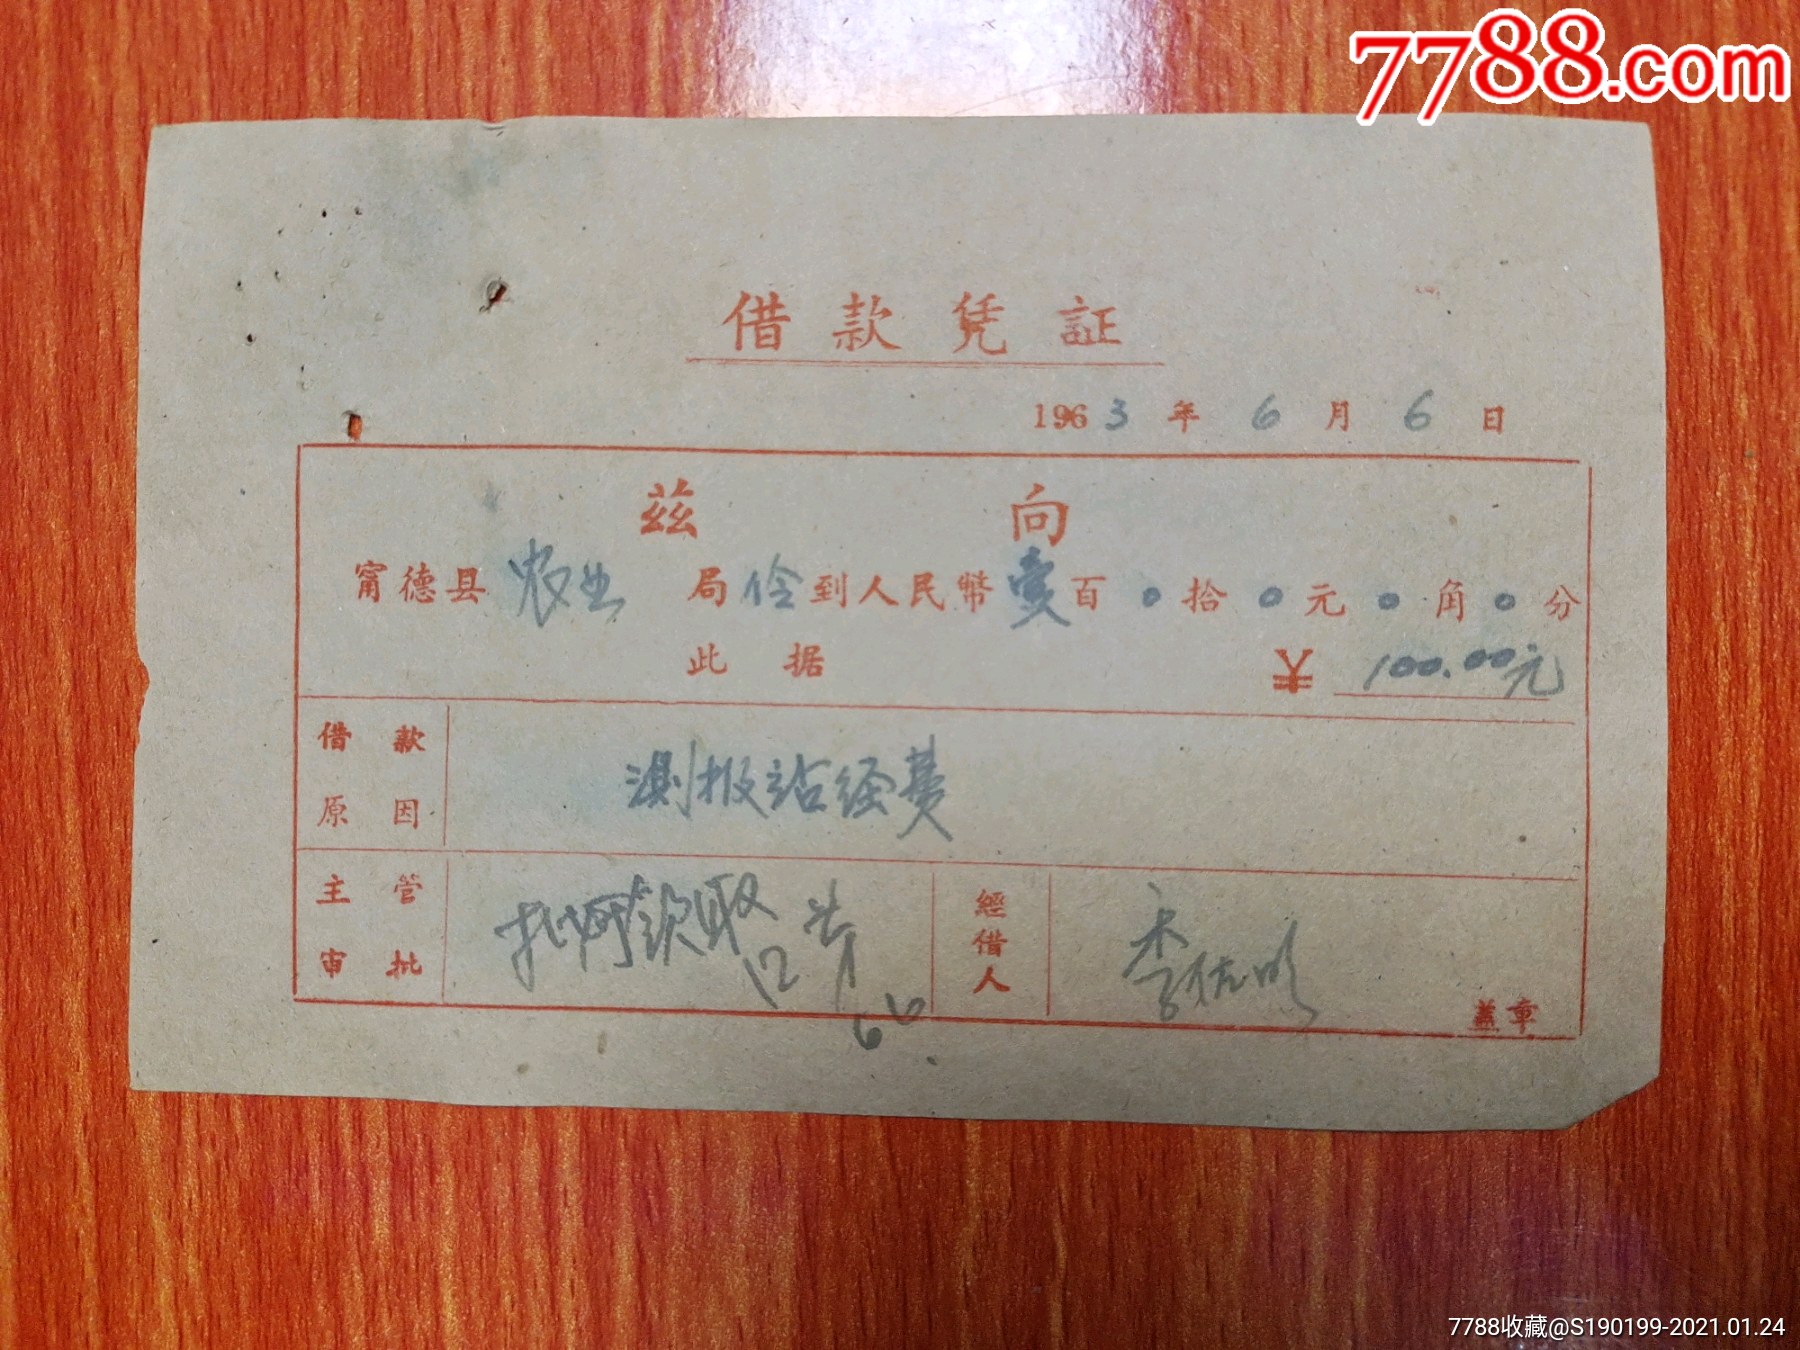 7788.com
借款凭证
1963年6月6日
兹向
甯德县农业局伶到人民幣壹百0拾0元0角0分
此据 ￥100.00元
借款原因 测报站经费
主管审批 12 66
經借人 李佐明
盖章
7788收藏@S190199-2021.01.24